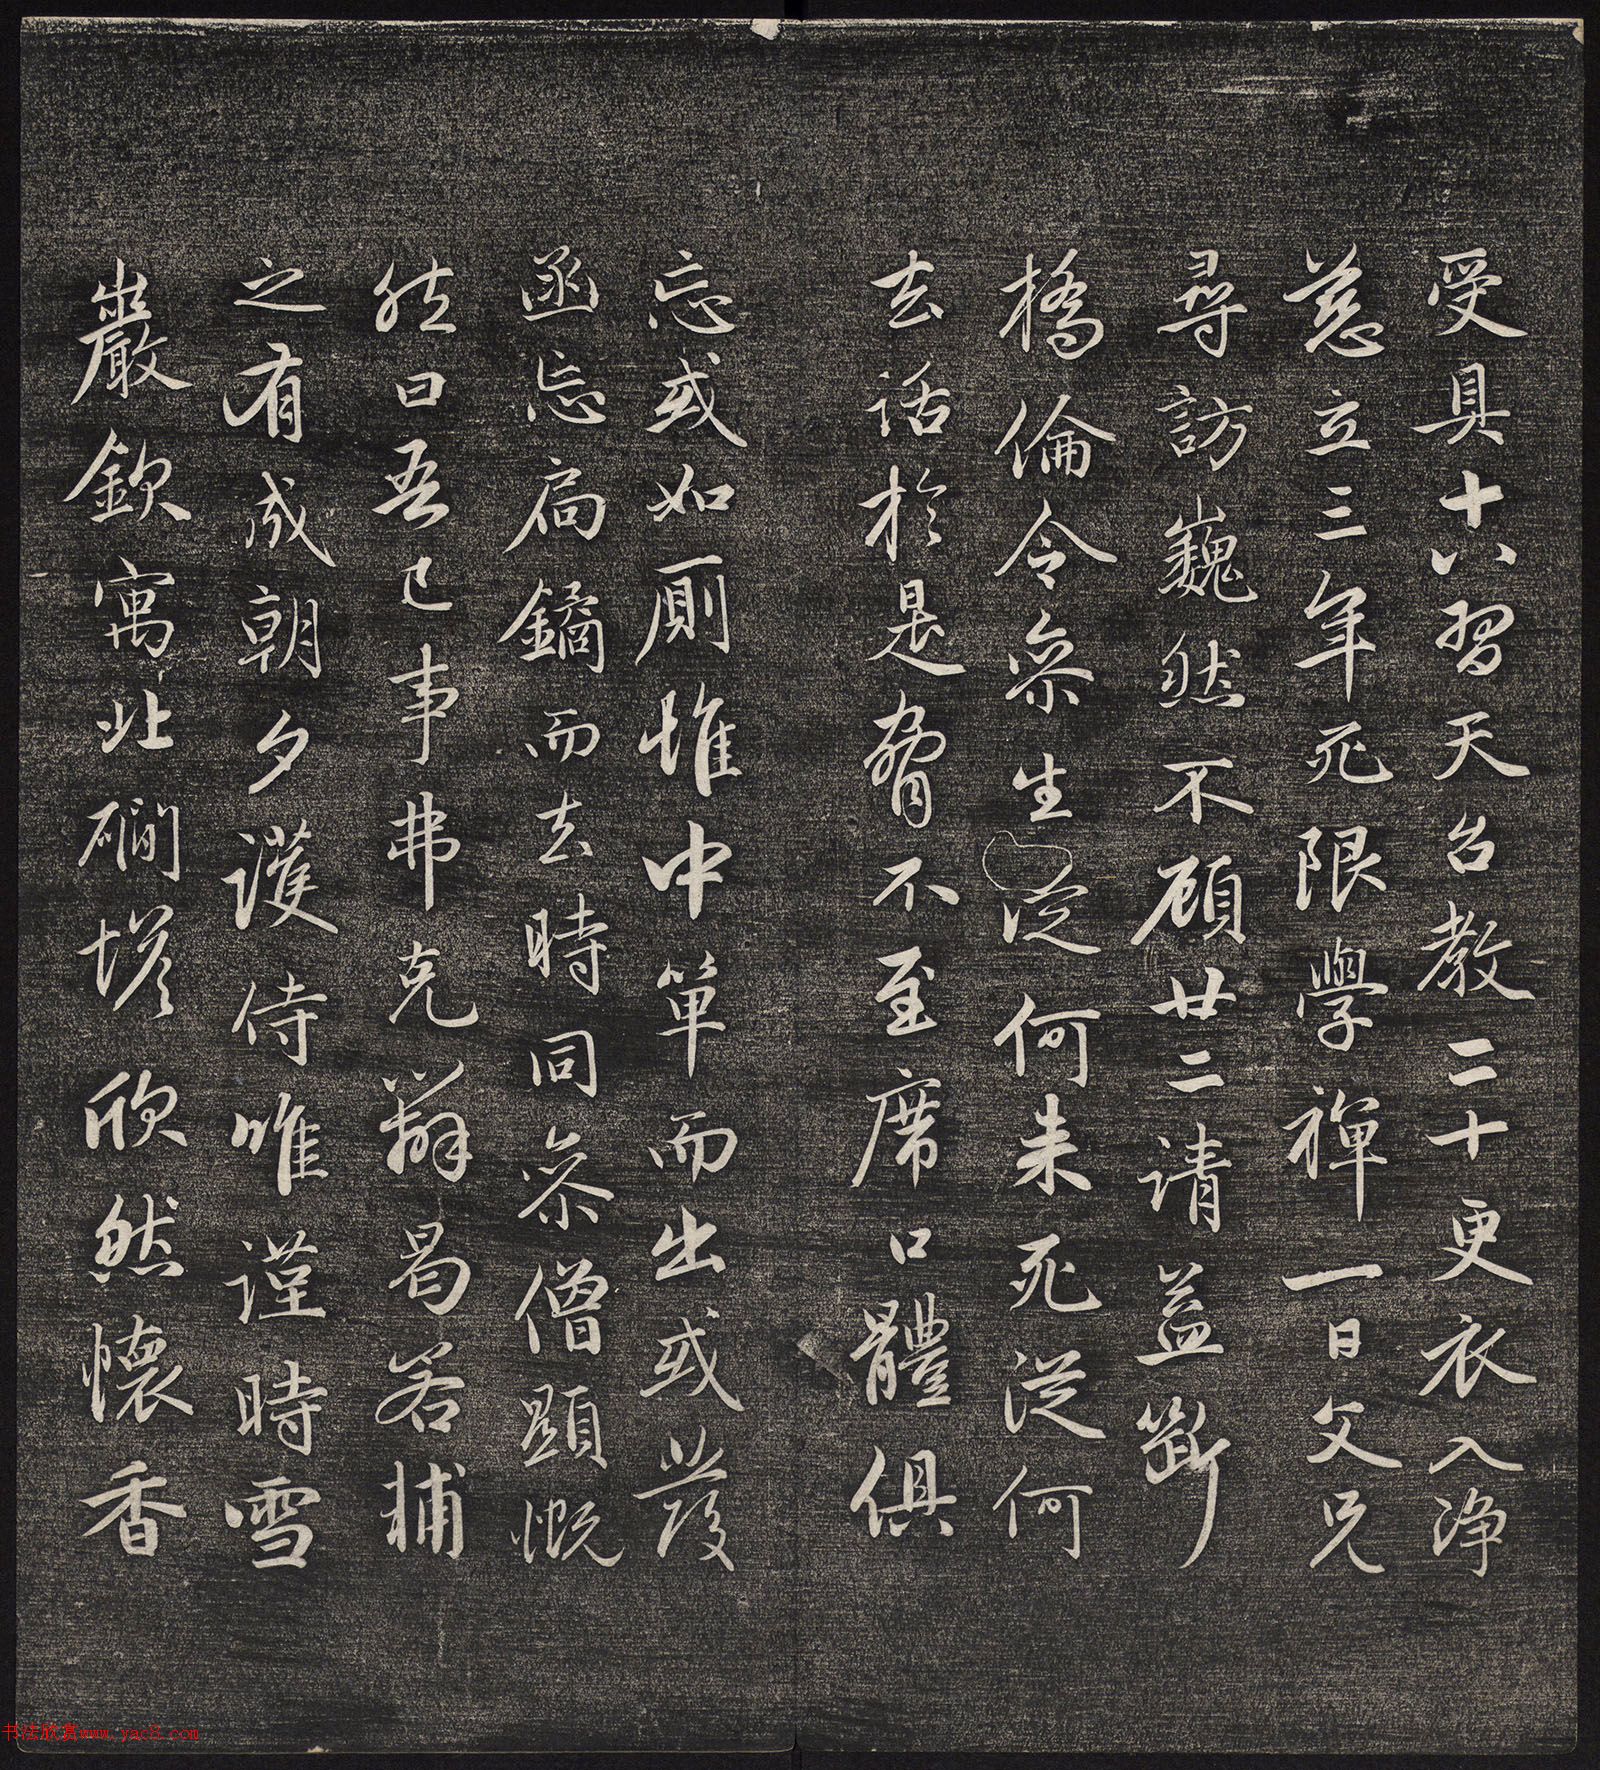 受具十八習天台教二十更衣入净
慈立三年死限學禪一日父兄
尋訪巍然不顧廿二請益斷
橋倫令參生從何來死從何
去話於是脅不至席口體俱
忘或如廁惟中單而出或發
函忘扃鐍而去時同參僧顯慨
然曰吾已事弗克辦曷若輔
之有成朝夕護侍唯謹時雪
巖欽寓北磵塔欣然懷香
书法欣赏www.yac8.com